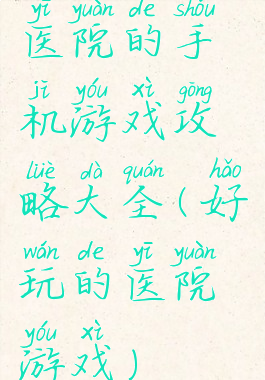 yī yuàn de shǒu
医院的手
jī yóu xì gōng
机游戏攻
lüè dà quán hǎo
略大全(好
wán de yī yuàn
玩的医院
yóu xì
游戏)